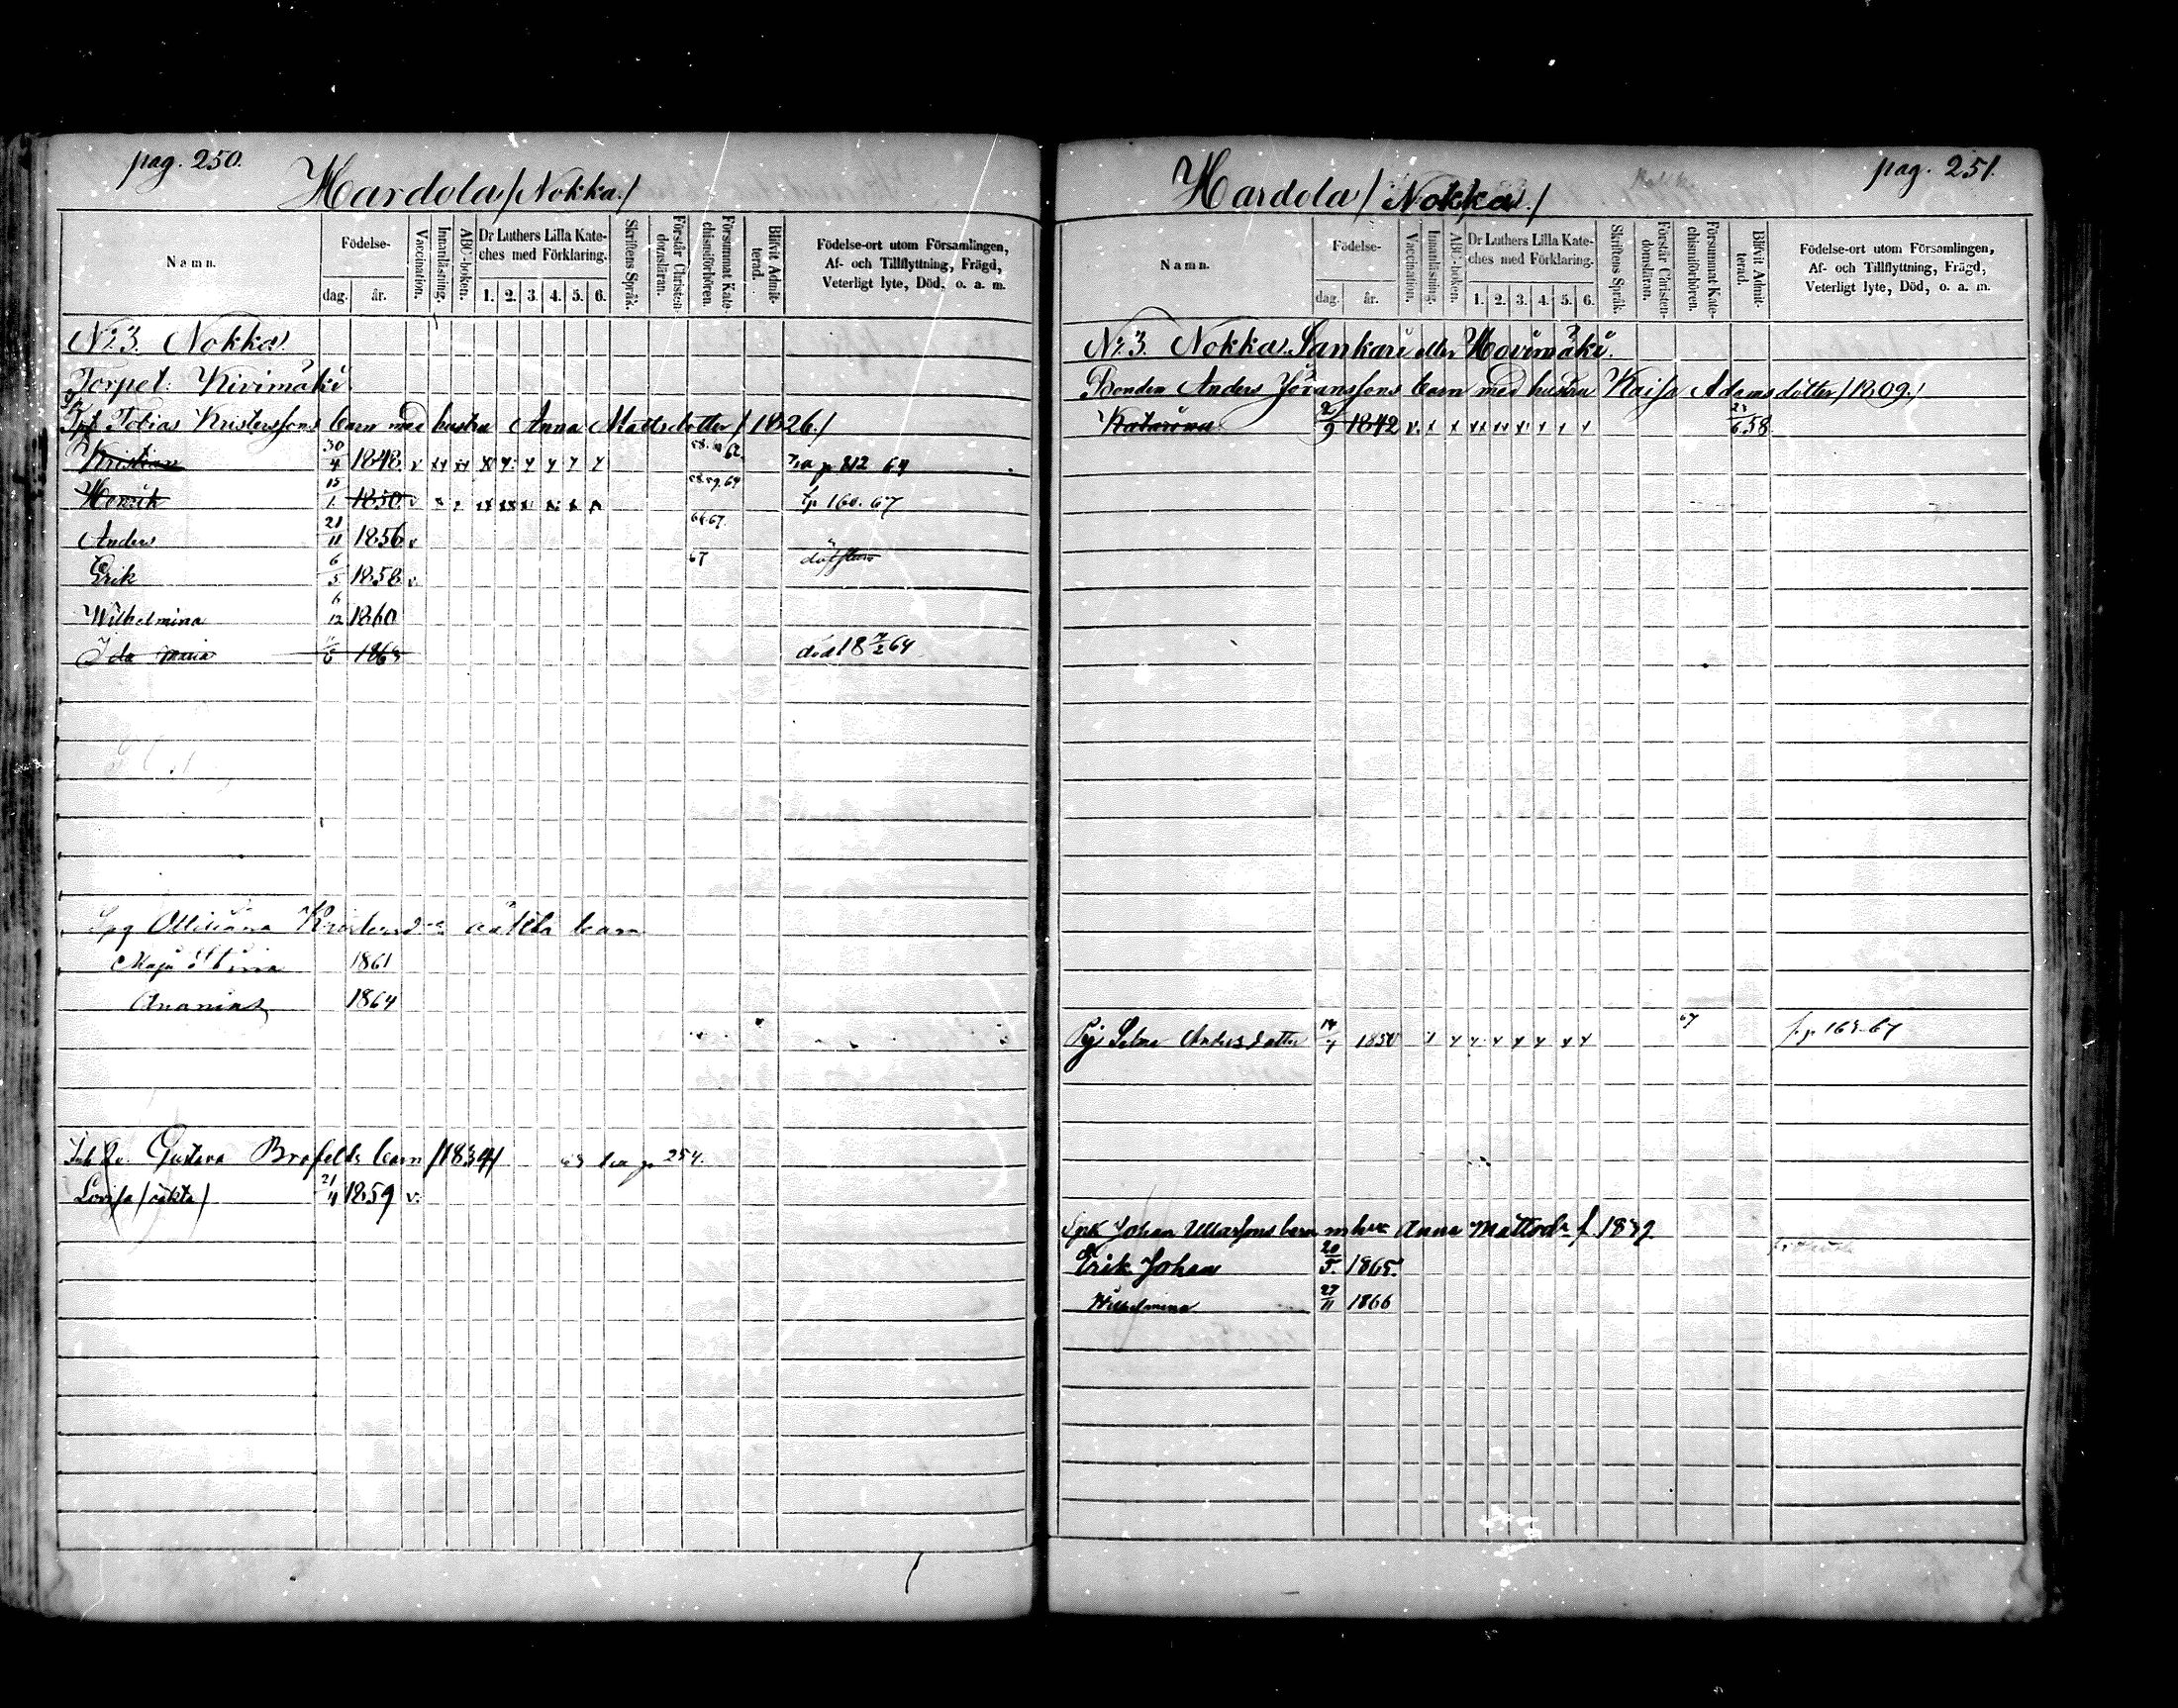 pag. 250.
Hardola /Nokka./
Namn.
Födelse-
dag.
år.
Vaccination.
Innanläsning.
ABC-boken.
Dr Luthers Lilla Kate-
ches med Förklaring.
1. 2. 3. 4. 5. 6.
Skriftens Språk.
Förstår Christen-
domsläran.
Försummat Kate-
chismiförhören.
Blifvit Admit-
terad.
Födelse-ort utom Församlingen,
Af- och Tillflyttning, Frägd,
Veterligt lyte, Död, o. a. m.
No 3. Nokka.
Torpet: Kivimäki
Tobias Kristerssons barn med hustru Anna Mattsdotter /1826./
Kristian 30/4 1848 v 62 p 212 64
Henrik 15/1 1850 v 64 p 160. 67
Anders 21/11 1856 v 66.67.
Erik 6/5 1858 v 67
Wilhelmina 6/12 1860
Ida Maria 1863 död 18 7/2 64
oäkta barn
Maja Stina 1861
Ananias 1864
Gustava Brofelds barn /1834/ p 254.
Lovisa /oäkta/ 21/4 1859 v.
pag. 251.
Hardola / Nokka /
Namn.
Födelse-
dag.
år.
Vaccination.
Innanläsning.
ABC-boken.
Dr Luthers Lilla Kate-
ches med Förklaring.
1. 2. 3. 4. 5. 6.
Skriftens Språk.
Förstår Christen-
domsläran.
Försummat Kate-
chismiförhören.
Blifvit Admit-
terad.
Födelse-ort utom Församlingen,
Af- och Tillflyttning, Frägd,
Veterligt lyte, Död, o. a. m.
No 3. Nokka. Sankari eller Hovimäki.
Bonden Anders Göranssons barn med hustru Kaisa Adamsdotter /1809./
Katarina 2/9 1842 v. 23/6 58
Pig. Selma Andersdotter 1850 67 p. 163-67
Johan Ullarsons barn m hu Anna Mattsdr f. 1839
Erik Johan 20/5. 1865.
Wilhelmina 27/11 1866